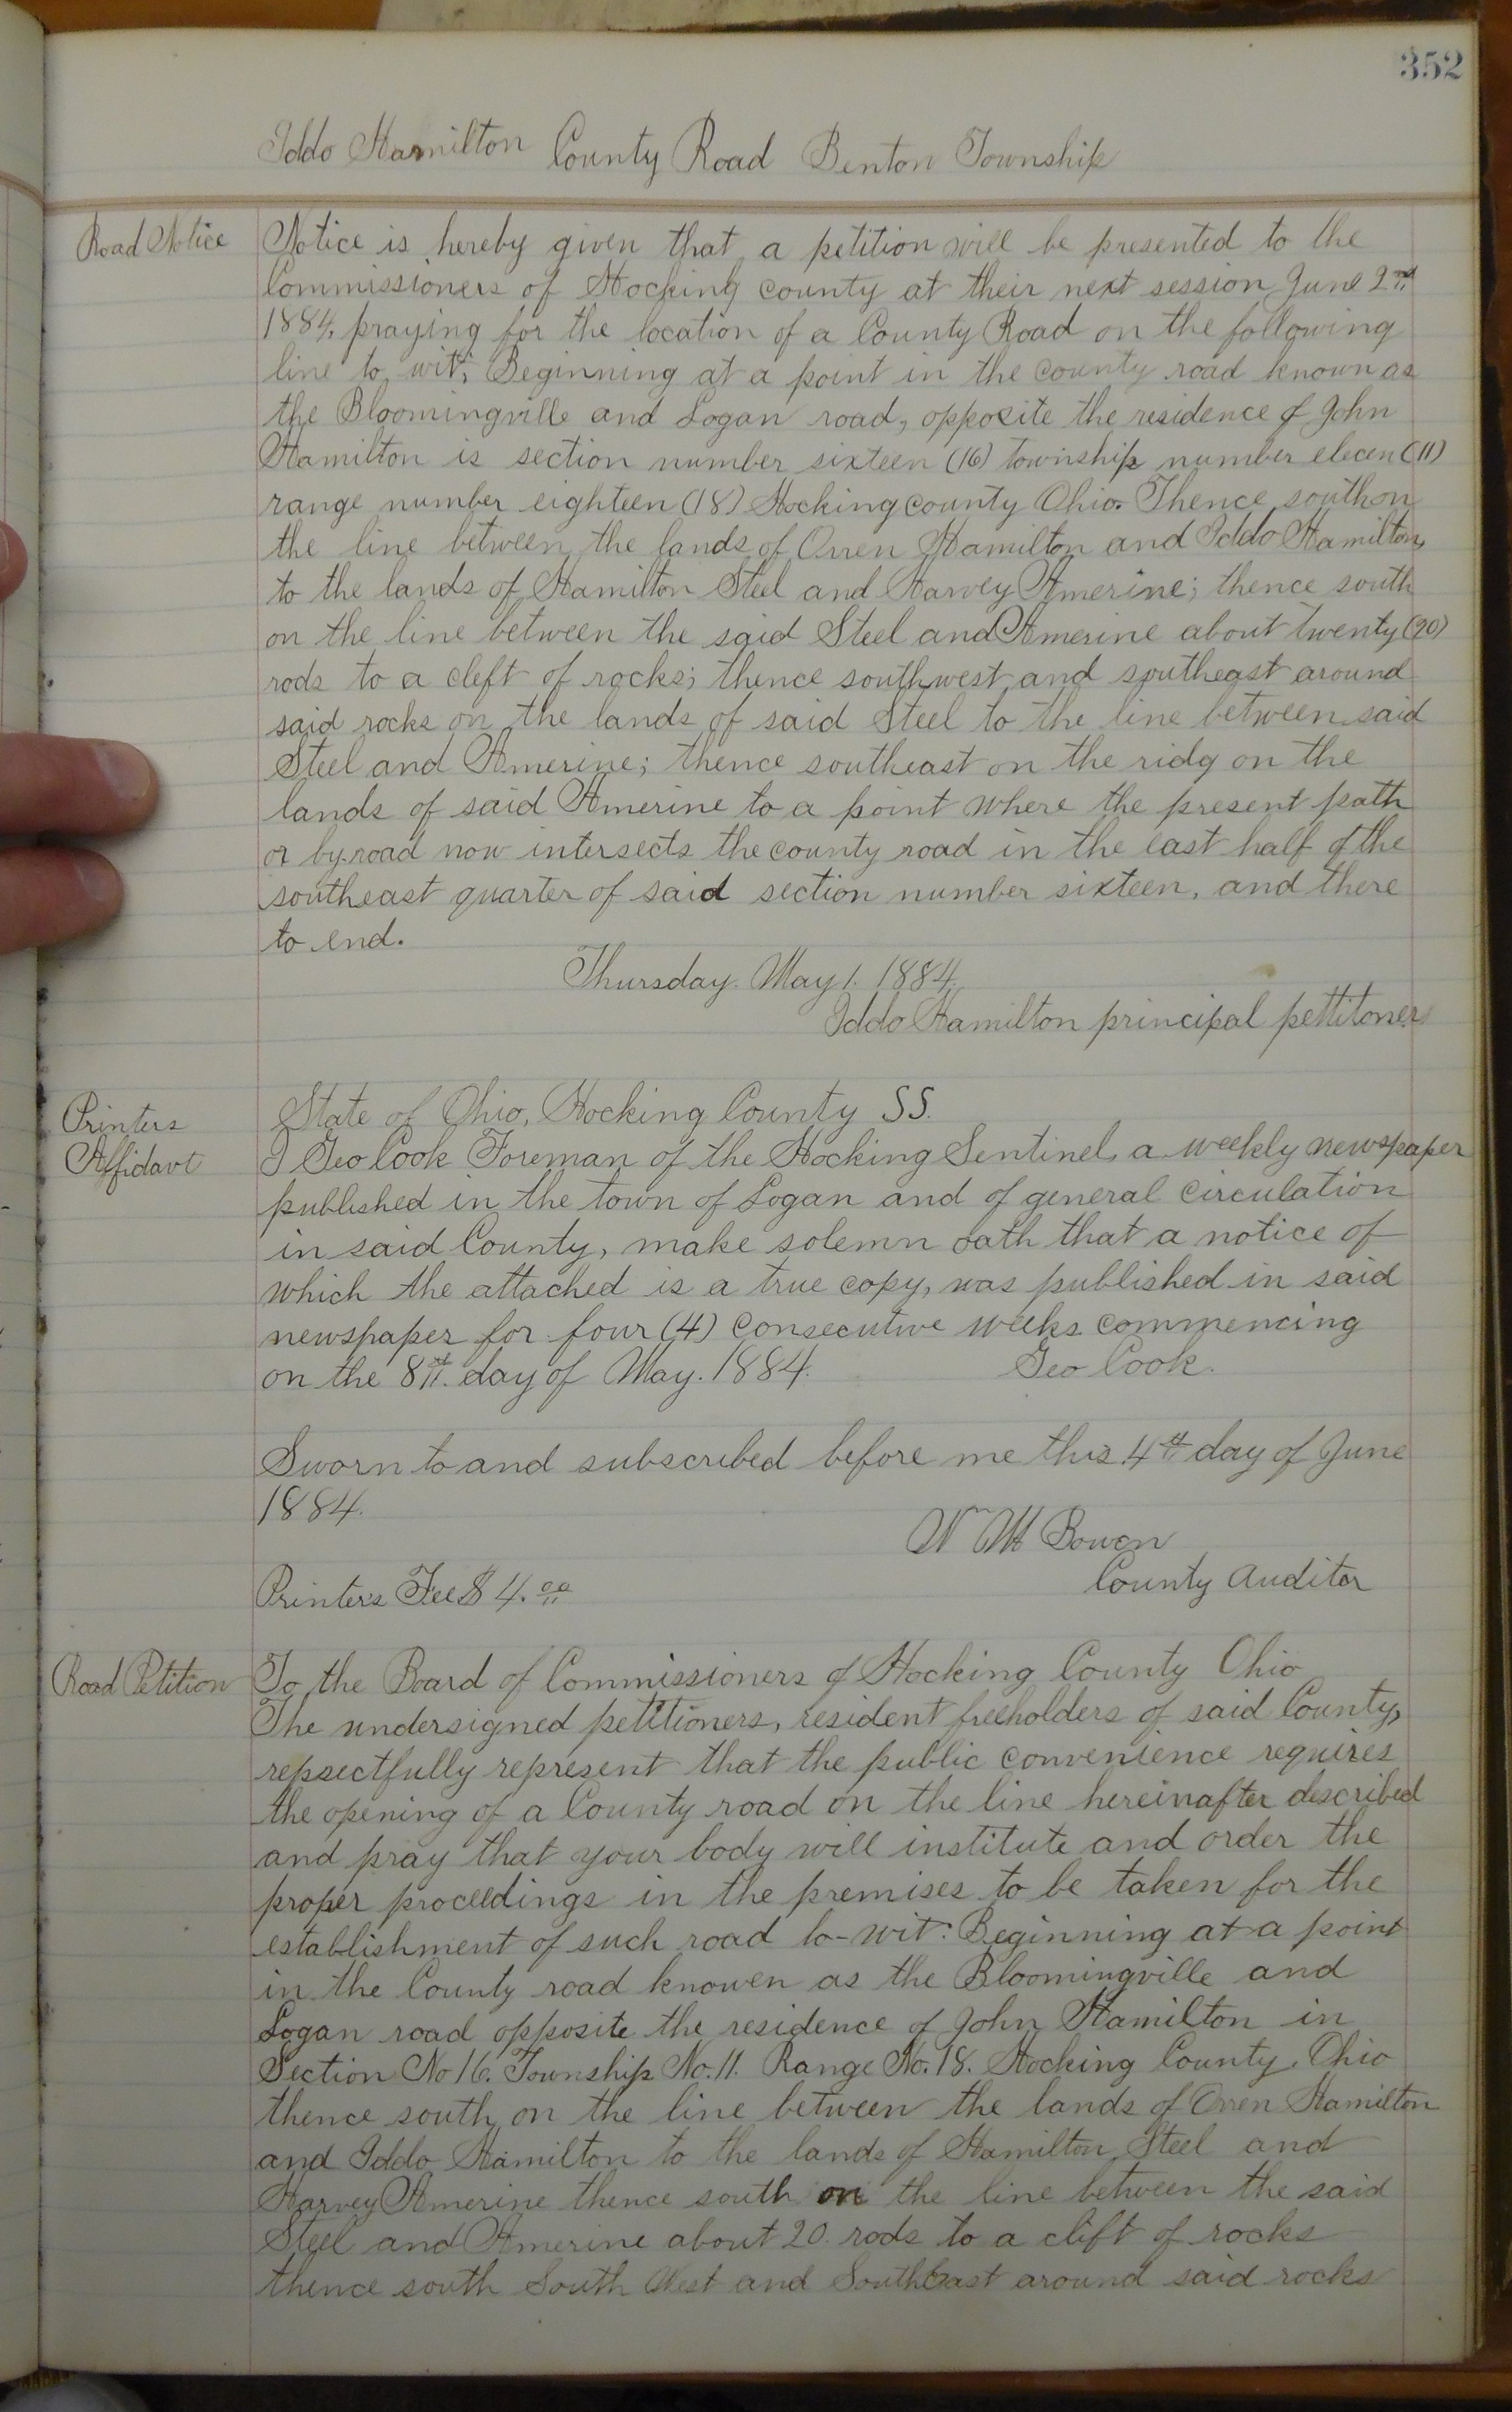 352
Iddo Hamilton County Road Benton Township
Road Notice
Notice is hereby given that a petition will be presented to the
Commissioners of Hocking county at their next session June 2nd
1884, praying for the location of a County Road on the following
line to wit; Beginning at a point in the county road known as
the Bloomingville and Logan road, opposite the residence of John
Hamilton is section number sixteen (16) township number elecen (11)
range number eighteen (18) Hocking county Ohio. Thence south on
the line between the lands of Orren Hamilton and Iddo Hamilton,
to the lands of Hamilton Steel and Harvey Amerine; thence south
on the line between the said Steel and Amerine about twenty (20)
rods to a cleft of rocks; thence southwest and southeast around
said rocks on the lands of said Steel to the line between said
Steel and Amerine; thence southeast on the ridg on the
lands of said Amerine to a point where the present path
or by-road now intersects the county road in the east half of the
southeast quarter of said section number sixteen, and there
to end.
Thursday. May 1. 1884.
Iddo Hamilton principal pettitoner
Printers
Affidavt
State of Ohio, Hocking County SS.
I Geo Cook Foreman of the Hocking Sentinel, a weekly newspaper
published in the town of Logan and of general circulation
in said County, make solemn oath that a notice of
which the attached is a true copy, was published in said
newspaper for four (4) consecutive weeks commencing
on the 8th day of May. 1884. Geo Cook.
Sworn to and subscribed before me this 4th day of June
1884.
W M Bowen
County Auditor
Printers Fee $4.00
Road Petition
To the Board of Commissioners of Hocking County Ohio
The undersigned petitioners, resident freeholders of said County,
repsectfully represent that the public convenience requires
the opening of a County road on the line hereinafter described
and pray that your body will institute and order the
proper proceedings in the premises to be taken for the
establishment of such road to-wit: Beginning at a point
in the County road knowen as the Bloomingville and
Logan road opposite the residence of John Hamilton in
Section No 16. Township No. 11. Range No. 18. Hocking County, Ohio
thence south on the line between the lands of Orren Hamilton
and Iddo Hamilton to the lands of Hamilton Steel and
Harvey Amerine thence south on the line between the said
Steel and Amerine about 20 rods to a clift of rocks
thence south South West and SouthEast around said rocks